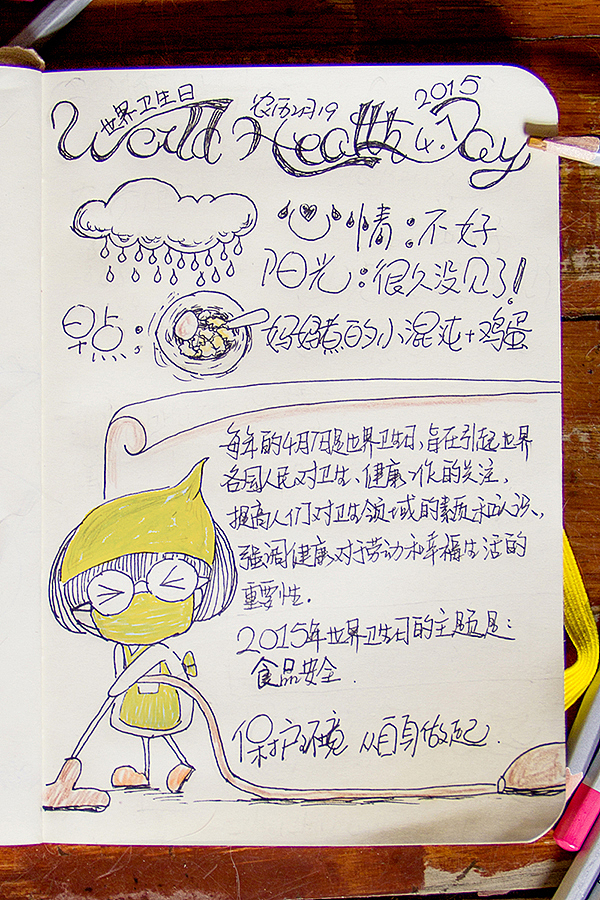 世界卫生日 农历2月19 2015
World Health Day 4.7
心情:不好
阳光:很久没见了!
早点:妈妈煮的小混沌+鸡蛋
每年的4月7日是世界卫生日,旨在引起世界
各国人民对卫生、健康工作的关注,
提高人们对卫生领域的素质和认识,
强调健康对于劳动和幸福生活的
重要性.
2015年世界卫生日的主题是:
食品安全.
保护环境 从自身做起.